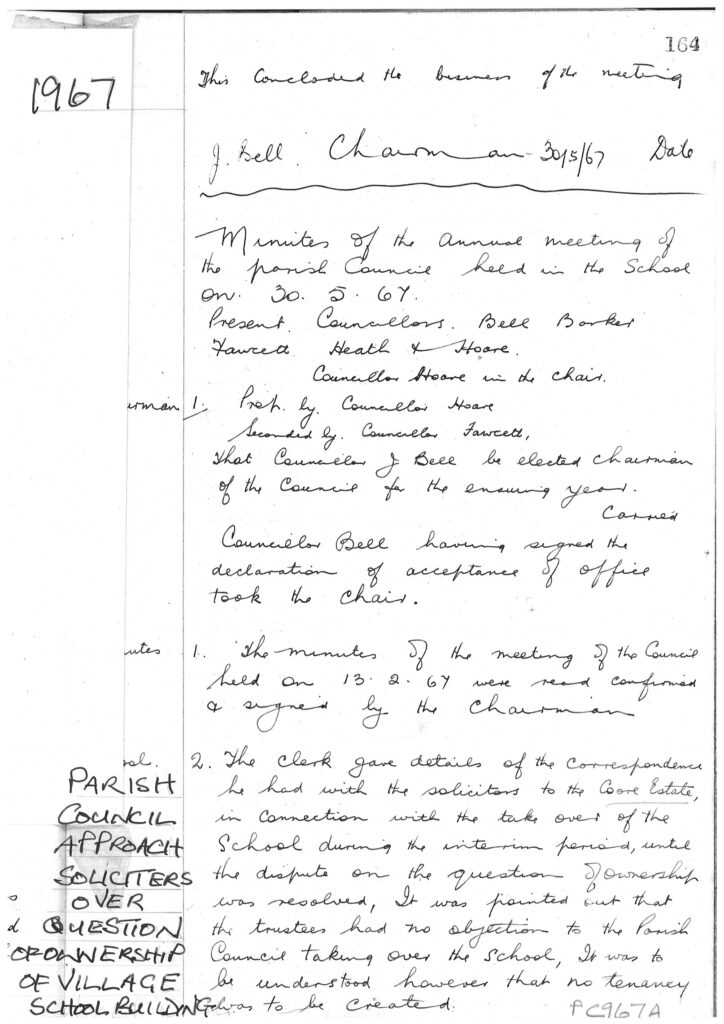 164
1967
This concluded the business of the meeting
J. Bell. Chairman 30/5/67 Date
Minutes of the annual meeting of
the parish Council held in the School
on. 30. 5. 67.
Present. Councillors. Bell Barker
Fawcett Heath & Hoare.
Councillor Hoare in the chair.
urman 1. Prop. by. Councillor Hoare
Seconded by. Councillor Fawcett,
That Councillor J Bell be elected chairman
of the Council for the ensuing year.
Carried
Councillor Bell having signed the
declaration of acceptance of office
took the chair.
utes 1. The minutes of the meeting of the Council
held on 13. 2. 67 were read confirmed
& signed by the Chairman
2. The clerk gave details of the correspondence
he had with the solicitors to the Coore Estate,
in connection with the take over of the
School during the interim period, until
the dispute on the question of ownership
was resolved, It was pointed out that
the trustees had no objection to the Parish
Council taking over the School, It was to
be understood however that no tenancy
was to be created.
PARISH
COUNCIL
APPROACH
SOLICITERS
s OVER
d QUESTION
OF OWNERSHIP
OF VILLAGE
SCHOOL BUILDING
PC967A